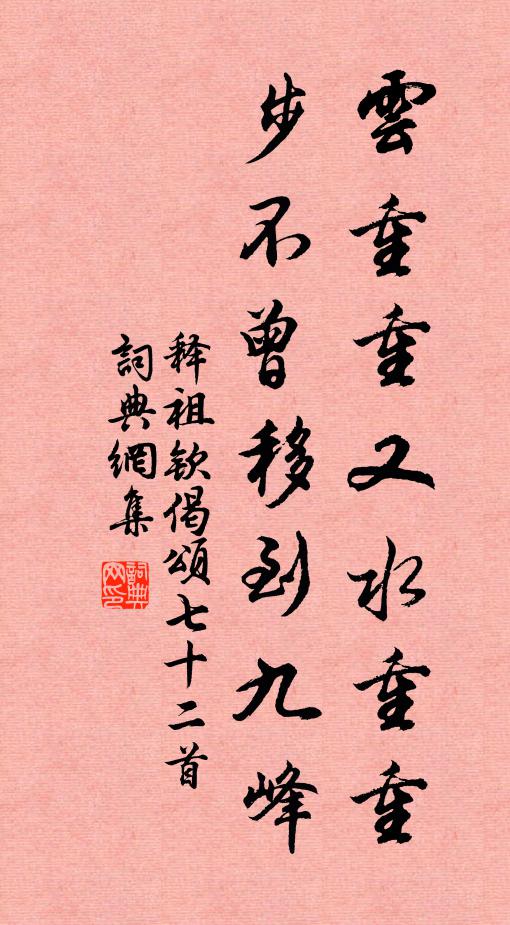 雲重重又水重重
步不曾移到九峰
释祖钦偈頌七十二首
詞典網集
詞典网印